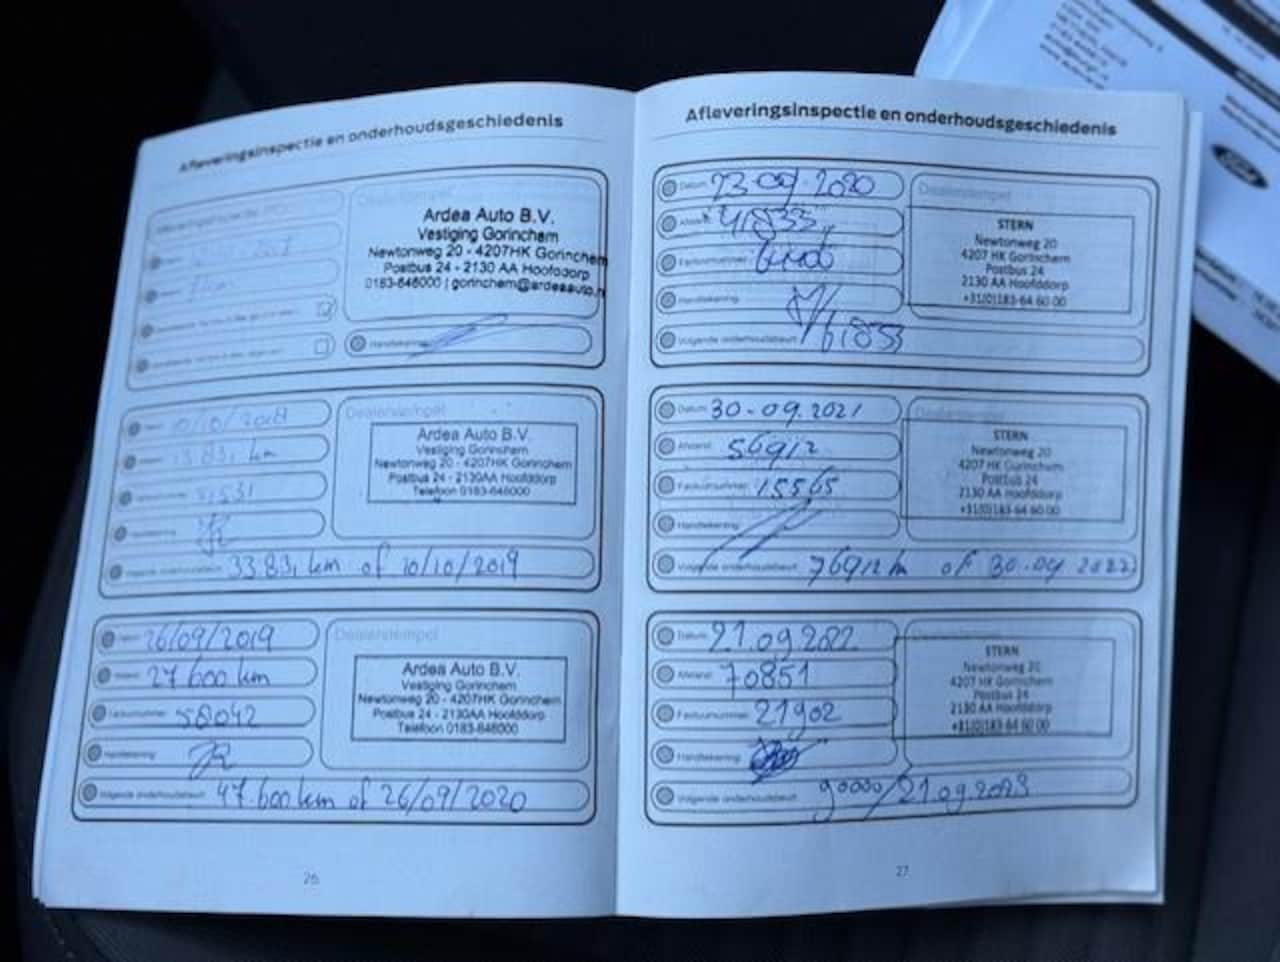 Afleveringsinspectie en onderhoudsgeschiedenis
Dealerstempel
Ardea Auto B.V.
Vestiging Gorinchem
Newtonweg 20 - 4207HK Gorinchem
Postbus 24 - 2130 AA Hoofddorp
0183-646000 | gorinchem@ardeaauto.n
Handtekening
10/10/2018
Dealerstempel
Ardea Auto B.V.
Vestiging Gorinchem
Newtonweg 20 - 4207HK Gorinchem
Postbus 24 - 2130AA Hoofddorp
Telefoon 0183-646000
Handtekening
Volgende onderhoudsbeurt 33.831 km of 10/10/2019
Datum 26/09/2019
Afstand 27.600 km
Factuurnummer 58042
Handtekening
Volgende onderhoudsbeurt 47.600 km of 26/09/2020
Dealerstempel
Ardea Auto B.V.
Vestiging Gorinchem
Newtonweg 20 - 4207HK Gorinchem
Postbus 24 - 2130AA Hoofddorp
Telefoon 0183-646000
26
Afleveringsinspectie en onderhoudsgeschiedenis
Datum 23-09-2020
Afstand 41833
Factuurnummer 6400
Handtekening
Volgende onderhoudsbeurt 61833
Dealerstempel
STERN
Newtonweg 20
4207 HK Gorinchem
Postbus 24
2130 AA Hoofddorp
+31(0)183-64 60 00
Datum 30-09-2021
Afstand 56912
Factuurnummer 15565
Handtekening
Volgende onderhoudsbeurt 76912 km of 30-09 2022
Dealerstempel
STERN
Newtonweg 20
4207 HK Gorinchem
Postbus 24
2130 AA Hoofddorp
+31(0)183-64 60 00
Datum 21.09.2022
Afstand 70851
Factuurnummer 21902
Handtekening
Volgende onderhoudsbeurt 90000/21.09.2023
STERN
Newtonweg 20
4207 HK Gorinchem
Postbus 24
2130 AA Hoofddorp
+31(0)183-64 60 00
27